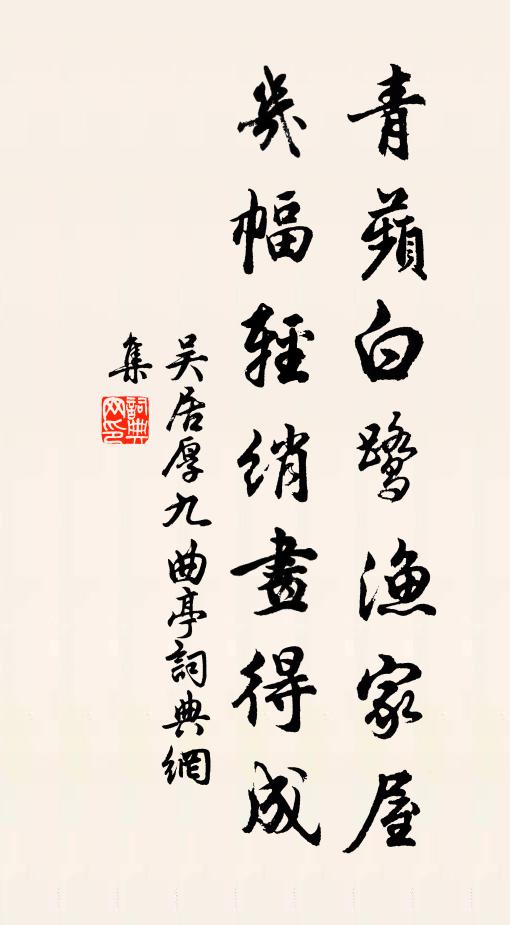 青蘋白鷺漁家屋
幾幅輕綃畫得成
吴居厚九曲亭詞典網
集
詞典
网印